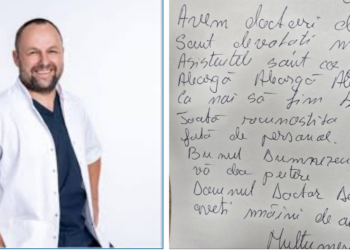 Avem doctori d
Sunt devotati m
Asistentele sunt ca
Aleargă Aleargă Al
Ca mai să fim
Toată recunostita
fată de personal.
Bunul Dumnezeu
vă dea putere
Domnul Doctor
aveti mâini de au
Multumes